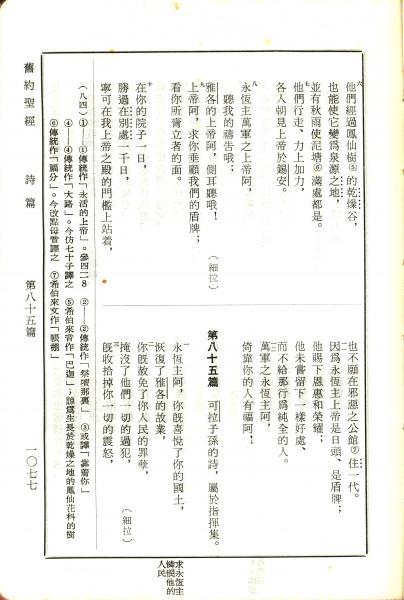 六 他們經過鳳仙樹⑤的乾燥谷，
也能使它變爲泉源之地，
並有秋雨使浥塘⑥滿處都是。
七 他們行走、力上加力，
各人朝見上帝於錫安。
八 永恆主萬軍之上帝阿，
聽我的禱告哦；
雅各的上帝阿，側耳聽哦！（細拉）
九 上帝阿，求你垂顧我們的盾牌；
看你所膏立者的面。
十 在你的院子一日，
勝過在別處一千日，
寧可在我上帝之殿的門檻上站着，
也不願在邪惡之公館⑦住一代。
十一 因爲永恆主上帝是日頭、是盾牌；
他賜下恩惠和榮耀；
他未嘗留下一樣好處、
而不給那行爲純全的人。
十二 萬軍之永恆主阿，
倚靠你的人有福阿！
第八十五篇 可拉子孫的詩，屬於指揮集。
一 永恆主阿，你旣喜悅了你的國土，
恢復了雅各的故業，
二 你旣赦免了你人民的罪孽，
掩沒了他們一切的過犯，（細拉）
三 旣收拾掉你一切的震怒，
求永恆主
憐憫他的
人民
（八四）①—①傳統作「永活的上帝」。參四二8 ②—②傳統作「祭壇那裏」 ③或譯「靠着你」
④—④傳統作「大路」。今仿七十子譯之 ⑤希伯來音作「巴迦」；諒爲生長於乾燥之地的鳳仙花科的樹
⑥傳統作「福分」。今改點母音譯之 ⑦希伯來文作「帳棚」
舊約聖經 詩篇 第八十五篇 一〇七七